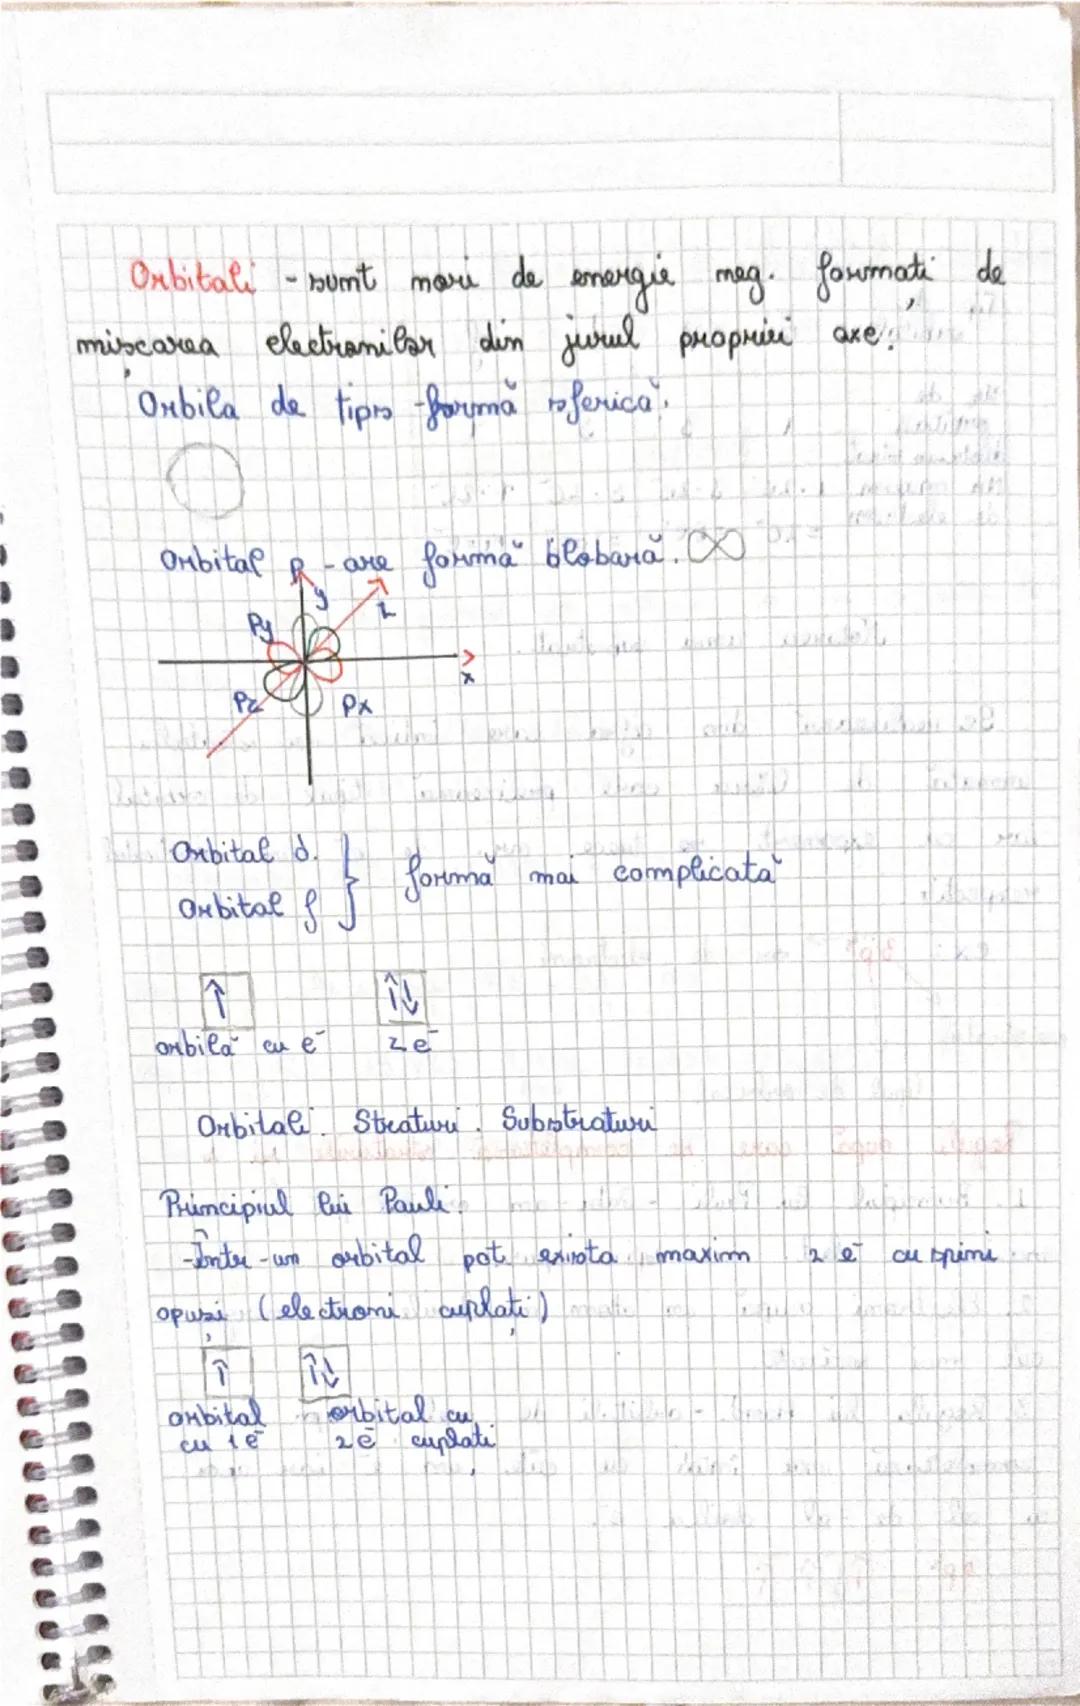 Orbitali - sunt mori de energie neg. formați de
mișcarea electronilor din jurul propriei axe.
Orbila de tip s - formă sferică.
Orbital p - are formă blobară. ∞
y
z
Py
x
Pz
Px
Orbital d.
Orbital f } formă mai complicată
↑ ↑↓
orbilă cu e⁻ 2 e⁻
Orbitali. Straturi. Substraturi
Principiul lui Pauli:
-Într-un orbital pot exista maxim 2 e⁻ cu spini
opuși (electroni cuplați)
↑ ↑↓
orbital orbital cu
cu 1 e⁻ 2 e⁻ cuplați